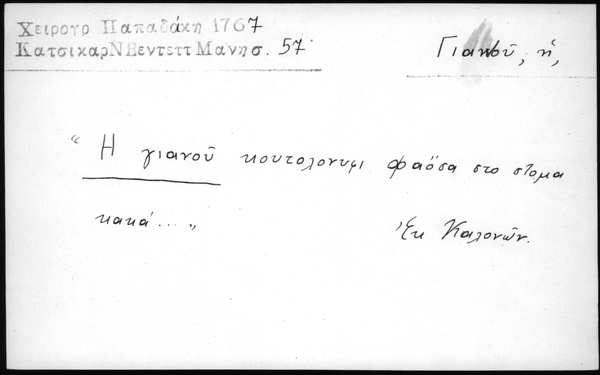 Χειρογρ Παπαδάκη 1767
ΚατσικαρΝΒεντεττ Μανησ. 57
Γιανοῦ, ἡ,
“ Η γιανοῦ κουτολονυφι φαόσα στο στομα
κακά... „
Ἐκ Καλονῶν.